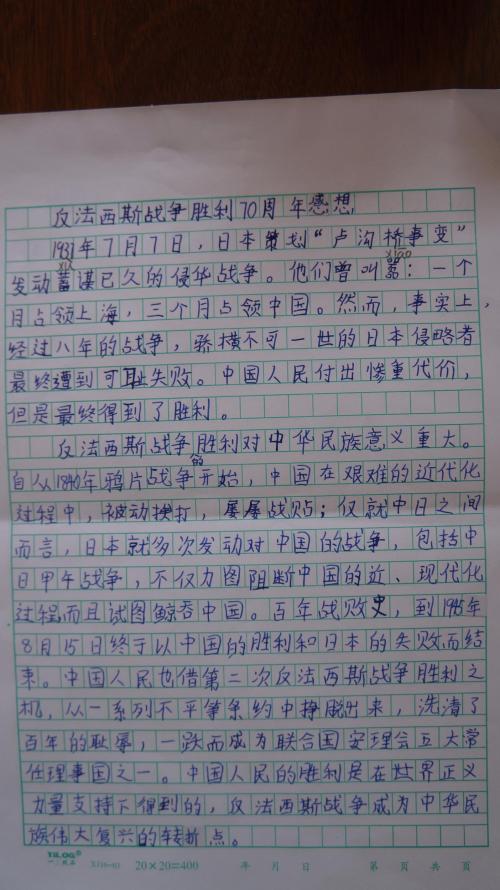 反法西斯战争胜利70周年感想
1937年7月7日，日本策划“卢沟桥事变”
xù xiāo
发动蓄谋已久的侵华战争。他们曾叫嚣：一个
月占领上海，三个月占领中国。然而，事实上，
经过八年的战争，骄横不可一世的日本侵略者
最终遭到可耻失败。中国人民付出惨重代价，
但是最终得到了胜利。
反法西斯战争胜利对中华民族意义重大。
的
自从1840年鸦片战争开始，中国在艰难的近代化
过程中，被动挨打，屡屡战败；仅就中日之间
而言，日本就多次发动对中国的战争，包括中
日甲午战争，不仅力图阻断中国的近、现代化
过程而且试图鲸吞中国。百年战败史，到1945年
8月15日终于以中国的胜利和日本的失败而结
束。中国人民也借第二次反法西斯战争胜利之
机，从一系列不平等条约中挣脱出来，洗清了
百年的耻辱，一跃而成为联合国安理会五大常
任理事国之一。中国人民的胜利是在世界正义
力量支持下得到的，反法西斯战争成为中华民
族伟大复兴的转折点。
20×20=400 年 月 日 第 页 共 页